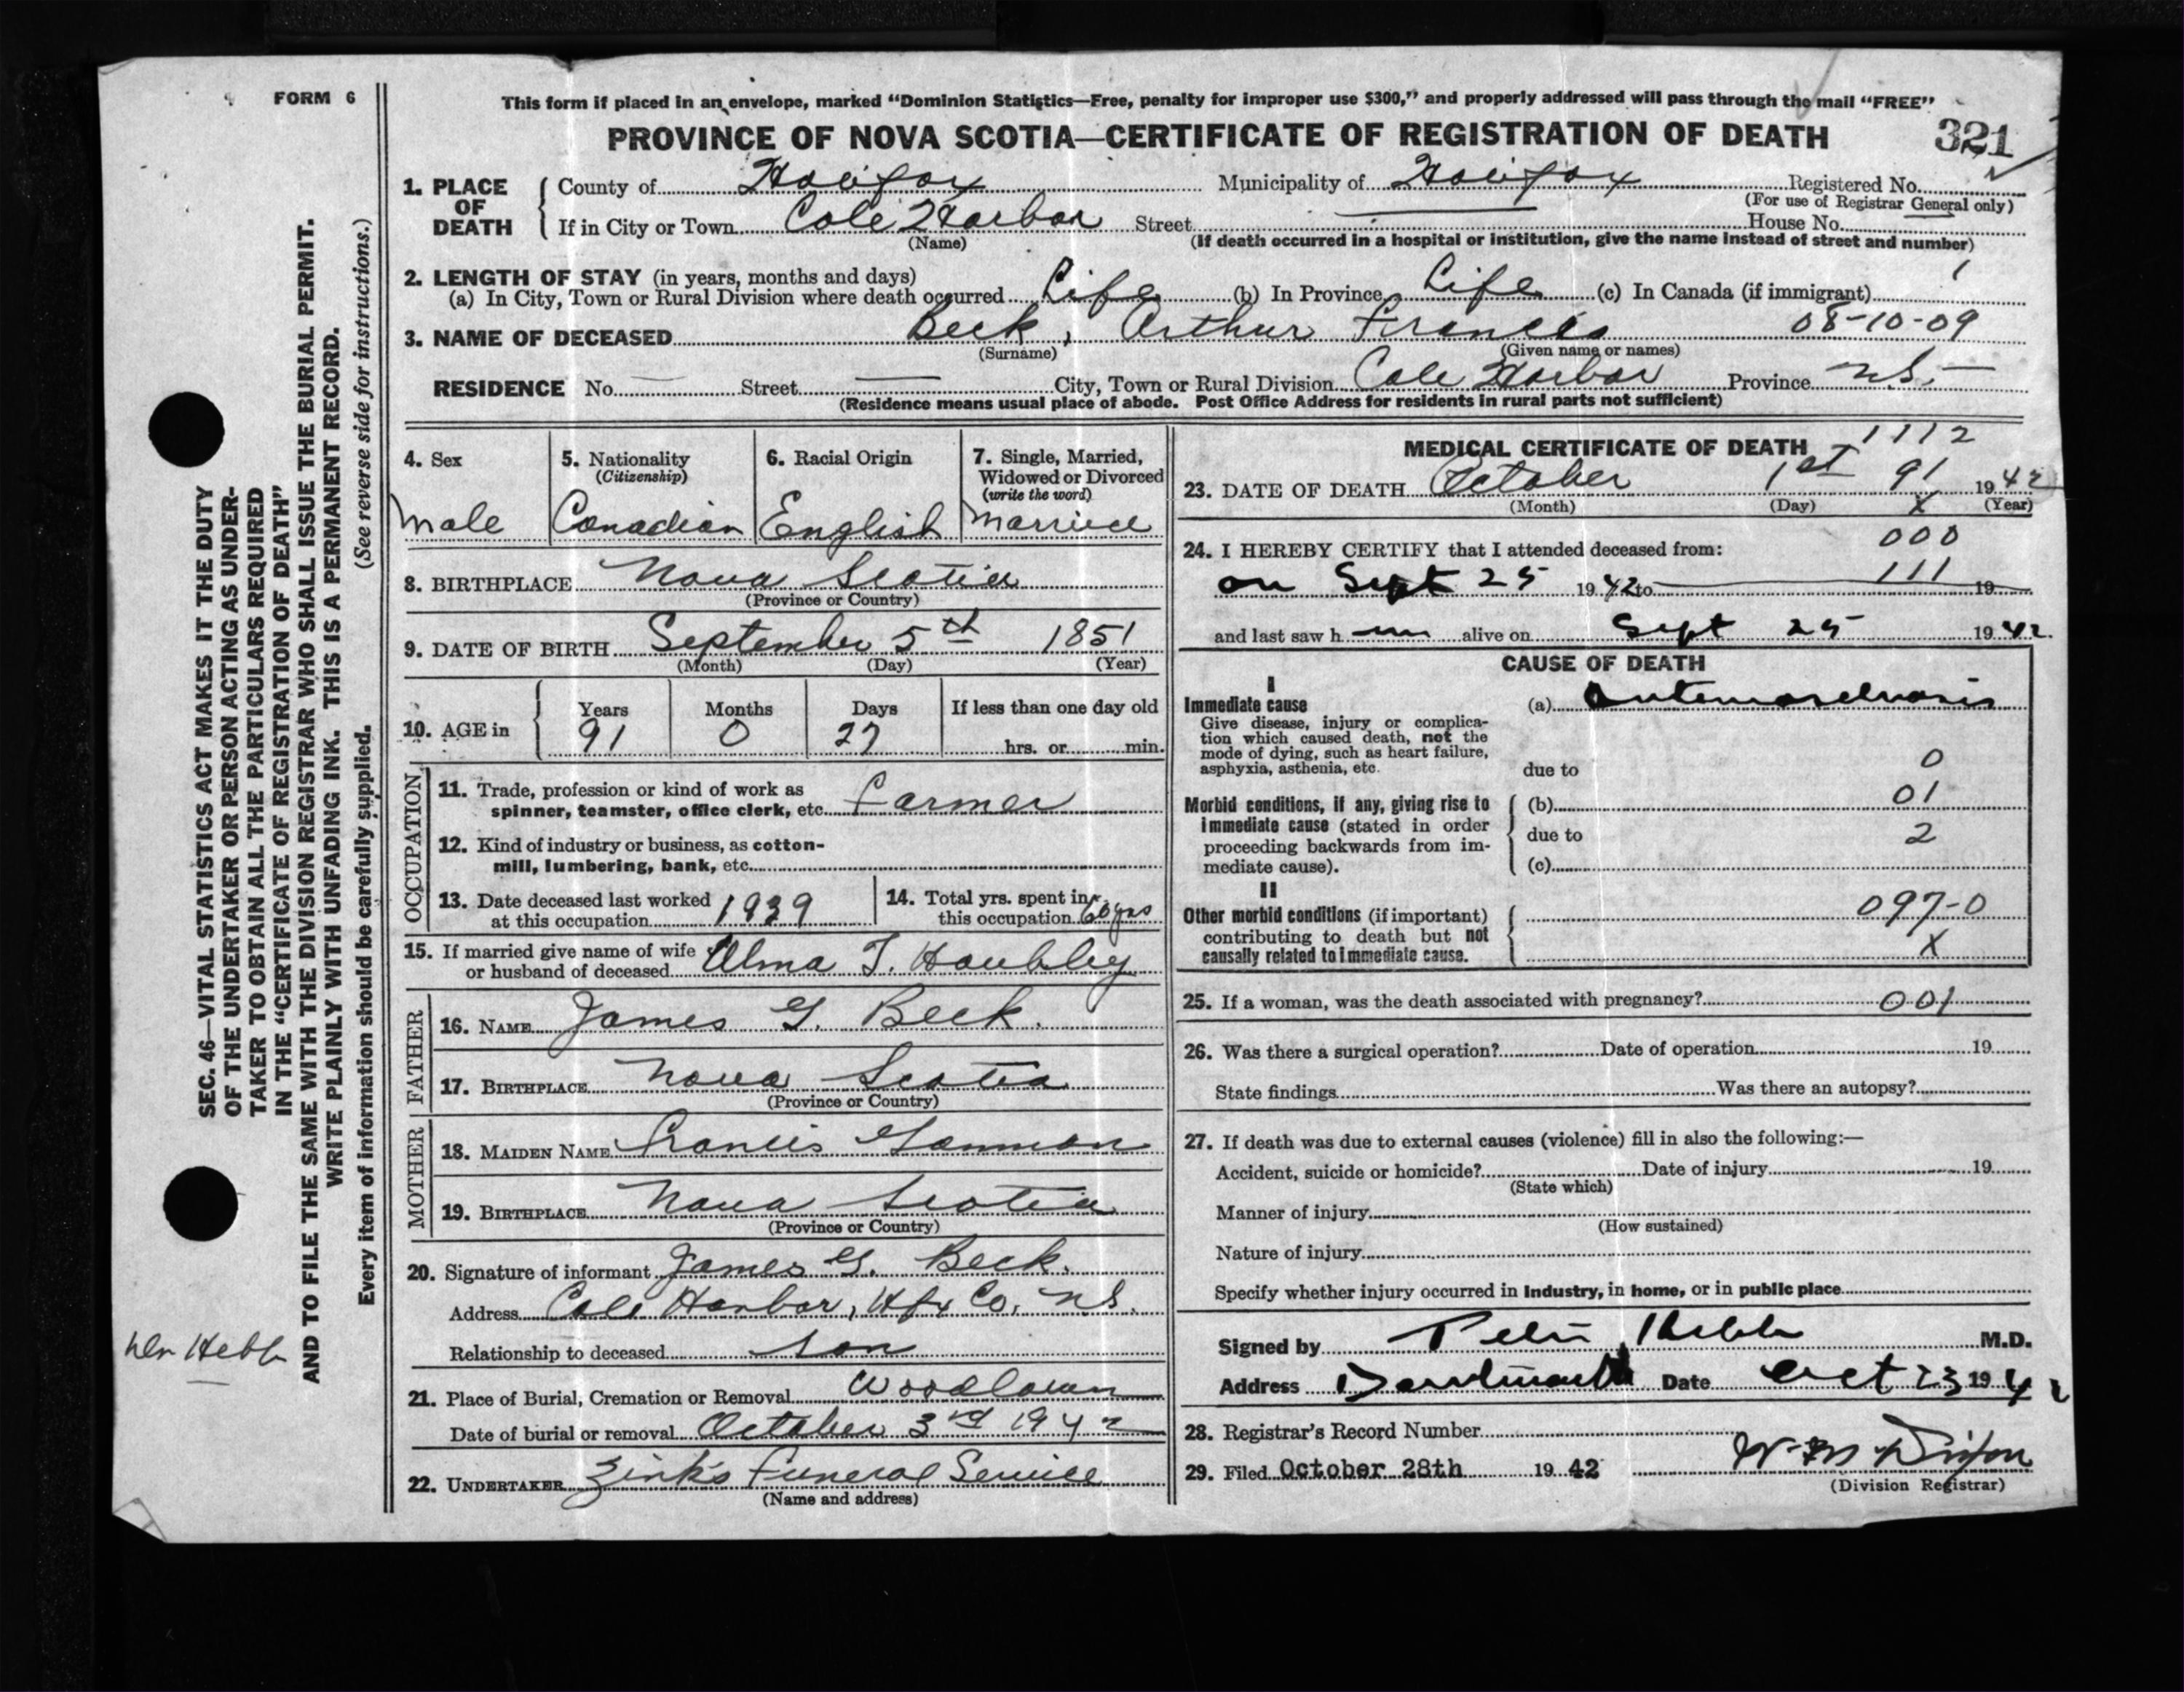 FORM 6
This form if placed in an envelope, marked "Dominion Statistics—Free, penalty for improper use $300," and properly addressed will pass through the mail "FREE"
PROVINCE OF NOVA SCOTIA—CERTIFICATE OF REGISTRATION OF DEATH 321
1. PLACE OF DEATH
County of Halifax Municipality of Halifax Registered No.
(For use of Registrar General only)
If in City or Town Cole Harbor Street House No.
(Name) (If death occurred in a hospital or institution, give the name instead of street and number)
2. LENGTH OF STAY (in years, months and days)
(a) In City, Town or Rural Division where death occurred Life (b) In Province Life (c) In Canada (if immigrant)
3. NAME OF DECEASED Beck, Arthur Francis 08-10-09
(Surname) (Given name or names)
RESIDENCE No. — Street — City, Town or Rural Division Cole Harbor Province N.S.
(Residence means usual place of abode. Post Office Address for residents in rural parts not sufficient)
4. Sex
Male
5. Nationality
(Citizenship)
Canadian
6. Racial Origin
English
7. Single, Married,
Widowed or Divorced
(write the word)
Married
8. BIRTHPLACE Nova Scotia
(Province or Country)
9. DATE OF BIRTH September 5th 1851
(Month) (Day) (Year)
10. AGE in
Years Months Days If less than one day old
91 0 27 hrs. or min.
OCCUPATION
11. Trade, profession or kind of work as
spinner, teamster, office clerk, etc. Farmer
12. Kind of industry or business, as cotton-
mill, lumbering, bank, etc.
13. Date deceased last worked
at this occupation 1939
14. Total yrs. spent in
this occupation 60 yrs
15. If married give name of wife
or husband of deceased Alma T.
FATHER
16. NAME James G. Beck.
17. BIRTHPLACE Nova Scotia
(Province or Country)
MOTHER
18. MAIDEN NAME Francis
19. BIRTHPLACE Nova Scotia
(Province or Country)
20. Signature of informant James G. Beck.
Address Cole Harbor, Hfx Co. N.S.
Relationship to deceased son
21. Place of Burial, Cremation or Removal Woodlawn
Date of burial or removal October 3rd 1942
22. UNDERTAKER Zink's Funeral Service
(Name and address)
MEDICAL CERTIFICATE OF DEATH 1112
23. DATE OF DEATH October 1st 91 1942
(Month) (Day) X (Year)
24. I HEREBY CERTIFY that I attended deceased from: 000
on Sept 25 1942 to 111 19
and last saw h im alive on Sept 25 1942.
CAUSE OF DEATH
I
Immediate cause
Give disease, injury or complica-
tion which caused death, not the
mode of dying, such as heart failure,
asphyxia, asthenia, etc.
(a)
due to 0
Morbid conditions, if any, giving rise to
immediate cause (stated in order
proceeding backwards from im-
mediate cause).
(b) 01
due to 2
(c)
II
Other morbid conditions (if important)
contributing to death but not
causally related to immediate cause.
097-0
X
25. If a woman, was the death associated with pregnancy? 001
26. Was there a surgical operation? Date of operation 19
State findings Was there an autopsy?
27. If death was due to external causes (violence) fill in also the following:—
Accident, suicide or homicide? Date of injury 19
(State which)
Manner of injury
(How sustained)
Nature of injury
Specify whether injury occurred in Industry, in home, or in public place
Signed by M.D.
Address Dartmouth Date Oct 23 1942
28. Registrar's Record Number
29. Filed October 28th 1942
(Division Registrar)
SEC. 46—VITAL STATISTICS ACT MAKES IT THE DUTY
OF THE UNDERTAKER OR PERSON ACTING AS UNDER-
TAKER TO OBTAIN ALL THE PARTICULARS REQUIRED
IN THE "CERTIFICATE OF REGISTRATION OF DEATH"
AND TO FILE THE SAME WITH THE DIVISION REGISTRAR WHO SHALL ISSUE THE BURIAL PERMIT.
WRITE PLAINLY WITH UNFADING INK. THIS IS A PERMANENT RECORD.
Every item of information should be carefully supplied. (See reverse side for instructions.)
Hebb